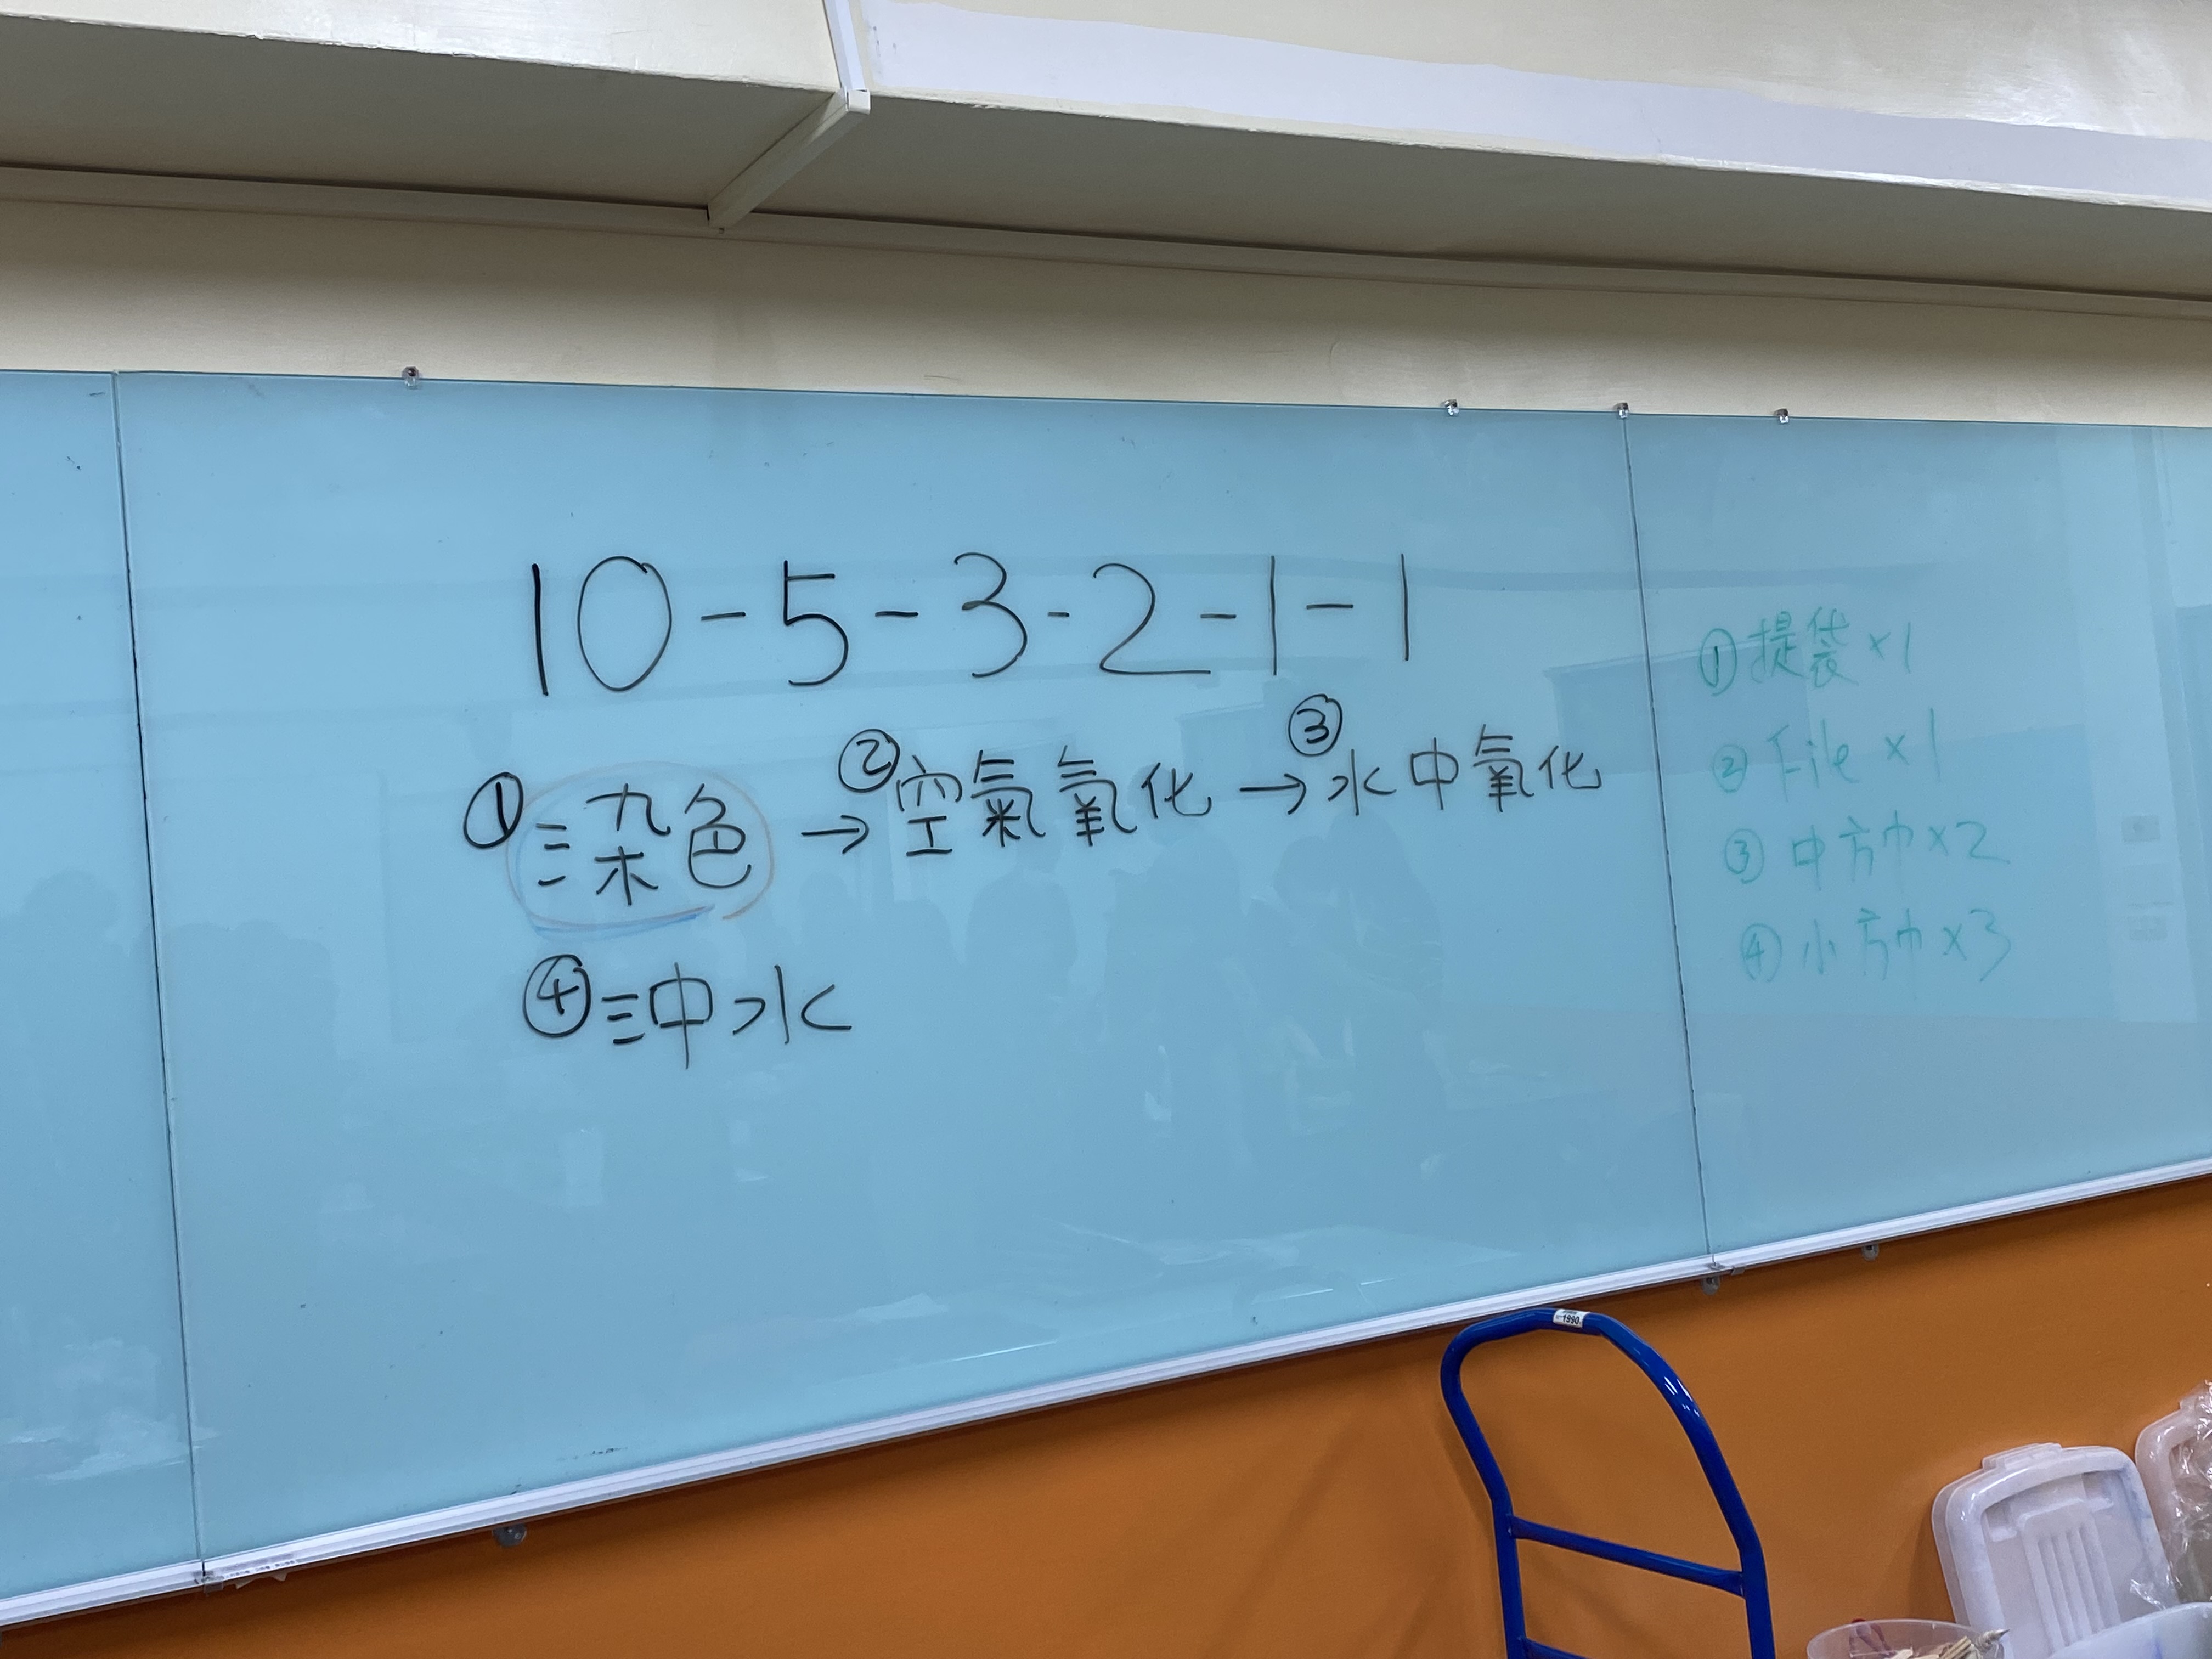 10-5-3-2-1-1
①染色→②空氣氧化→③水中氧化
④沖水
①提袋×1
②file×1
③中方巾×2
④小方巾×3
1990